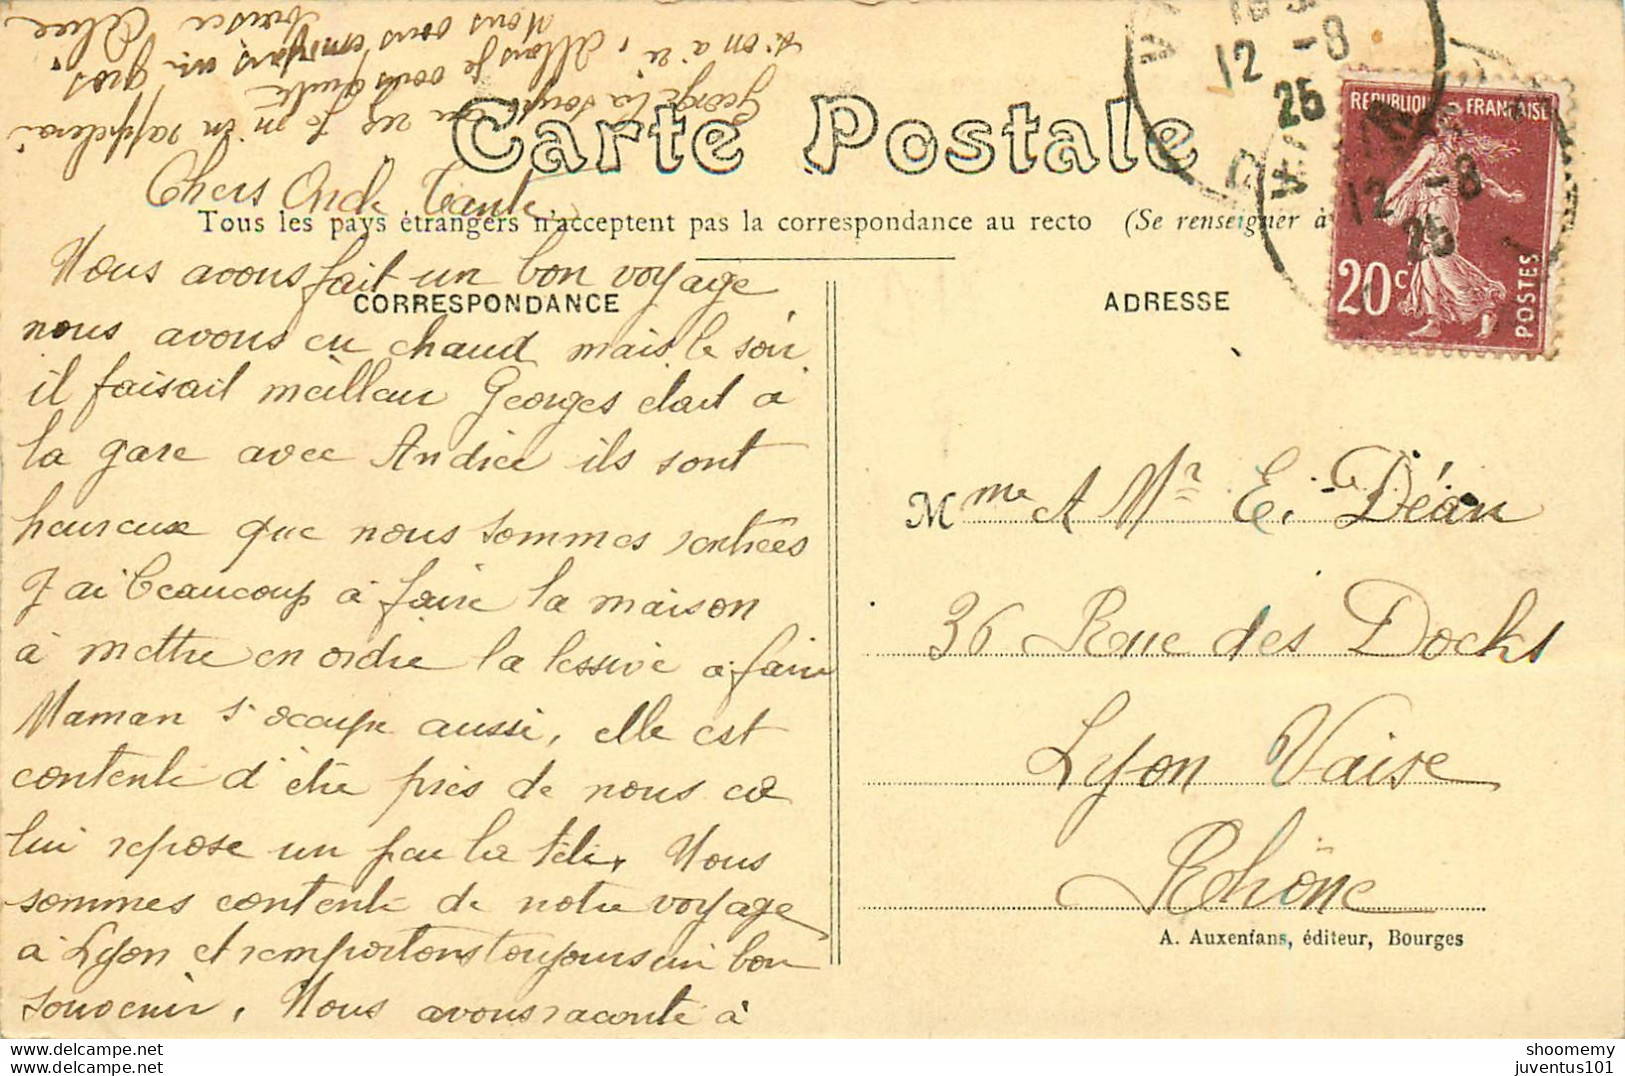 Carte Postale
Tous les pays étrangers n'acceptent pas la correspondance au recto (Se renseigner à
CORRESPONDANCE
ADRESSE
REPUBLIQUE FRANÇAISE
20c
POSTES
12 -8
25
12 -8
25
Chers Oncle Tante
Nous avons fait un bon voyage
nous avons eu chaud mais le soir
il faisait meilleur Georges était à
la gare avec Andrée ils sont
heureux que nous sommes rentrées
J'ai beaucoup à faire la maison
à mettre en ordre la lessive à faire
Maman s'occupe aussi, elle est
contente d'être près de nous ca
lui repose un peu la tête, Nous
sommes contente de notre voyage
à Lyon et remportons toujours un bon
souvenir, Nous avons raconté à
Georges la soupe
m'en rappelerai
l'on a ri, Allons je vous quitte
Nous vous envoyons un gros
Mme & Mr E. Déan
36 Rue des Docks
Lyon Vaise
Rhône
A. Auxenfans, éditeur, Bourges
shoomemy
juventus101